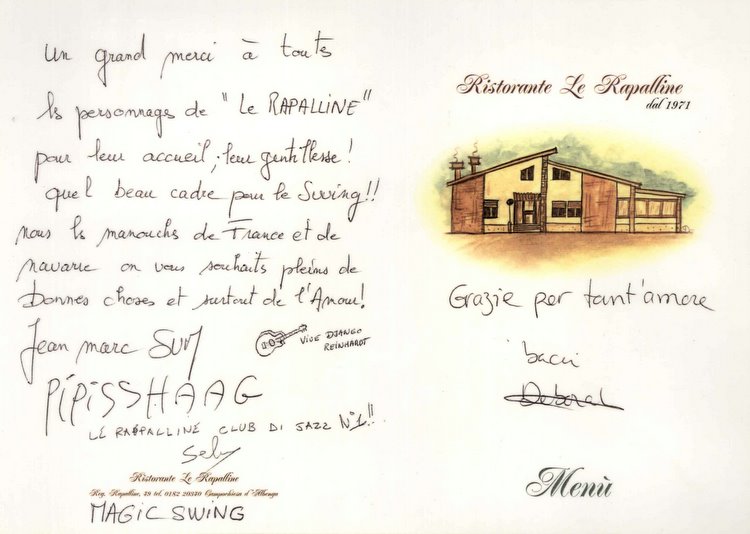 Un grand merci à touts
ls personnages de "Le RAPALLINE"
pour leur accueil, leur gentillesse!
quel beau cadre pour le Swing!!
nous ls manouchs de France et de
navarre on vous souhaits pleins de
Bonnes choses et surtout de l'Amour!
Jean marc
VIVE DJANGO
REINHARDT
PIPISSHAAG
LE RAPALLINE CLUB DI JAZZ N°1!!
Ristorante Le Rapalline
Reg. Rapalline, 49 tel. 0182 20340 Campochiesa d'Albenga
MAGIC SWING
Ristorante Le Rapalline
dal 1971
Grazie per tant'amore
baci
Deborah
Menù